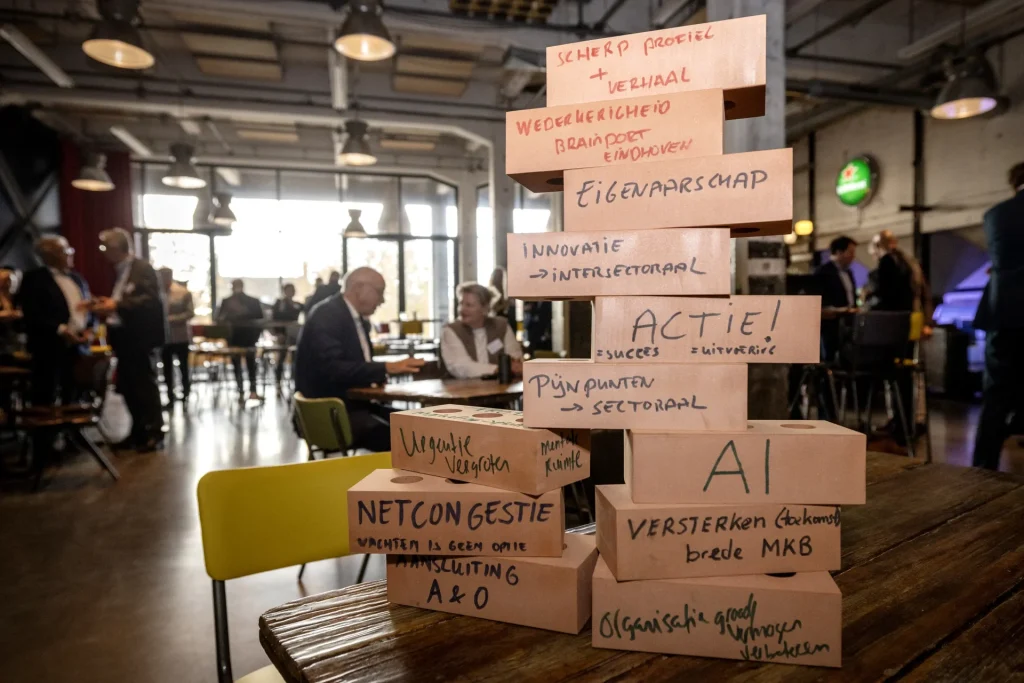 SCHERP PROFIEL
+
VERHAAL
WEDERKERIGHEID
BRAINPORT
EINDHOVEN
EIGENAARSCHAP
INNOVATIE
→ INTERSECTORAAL
ACTIE!
= SUCCES = UITVOERING
PIJNPUNTEN
→ SECTORAAL
Urgentie
Vergroten
Ruimte
AI
NETCONGESTIE
WACHTEN IS GEEN OPTIE
VERSTERKEN (toekomst)
brede MKB
AANSLUITING
A & O
Organisatie graad
Verbeteren